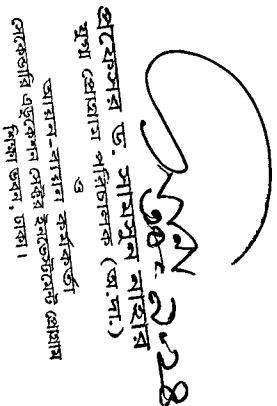 ১৪-১-২৪
প্রফেসর ড. সামসুন নাহার
যুগ্ম প্রোগ্রাম পরিচালক (অ.দা.)
ও
আয়ন-ব্যয়ন কর্মকর্তা
সেকেন্ডারি এডুকেশন সেক্টর ইনভেস্টমেন্ট প্রোগ্রাম
শিক্ষা ভবন, ঢাকা।